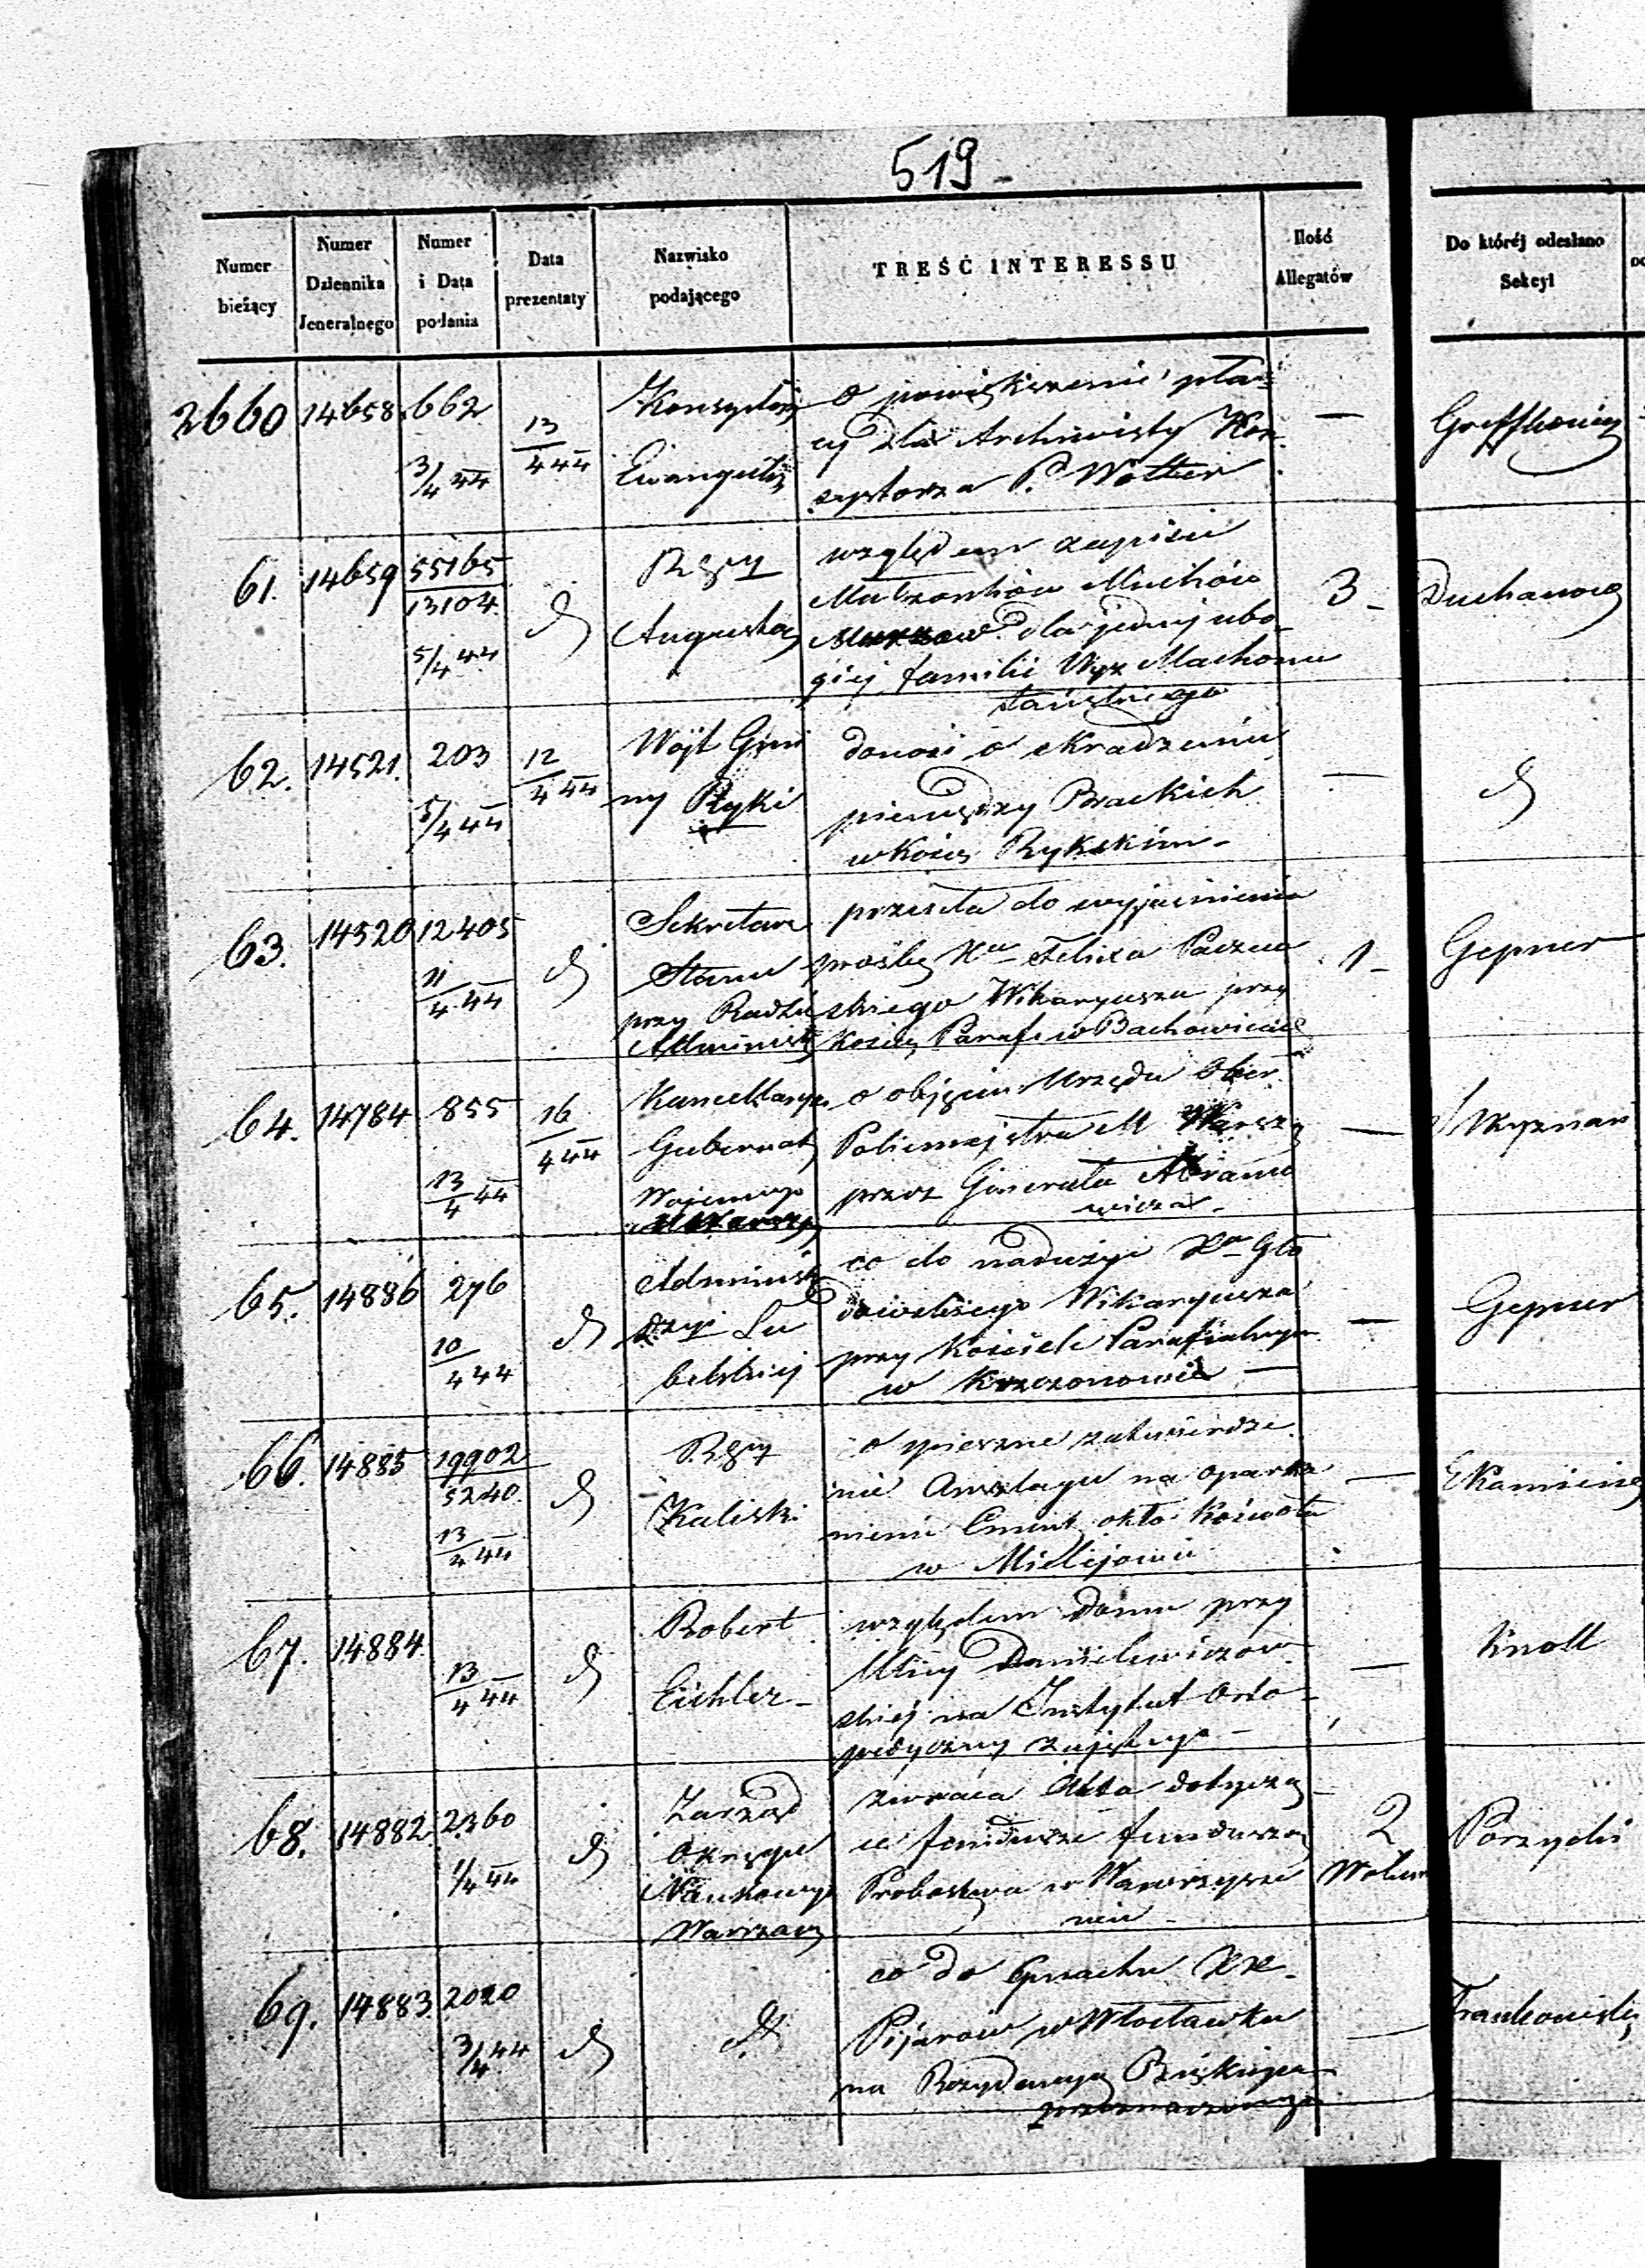 519
Numer bieżący
Numer Dziennika Jeneralnego
Numer i Data podania
Data prezentaty
Nazwisko podającego
TREŚĆ INTERESSU
Ilość Allegatów
Do któréj odesłano Sekcyi
2660 14658 662 3/4 44 13/4 44
Konsystorz
Ewangelic
o powiększenie pła-
cy dla Archiwisty Kon-
systorza P. Wolter
—
61. 14659 55165/13104 5/4 44
Rząd
Augustow
względem zapisu
Małżonków Muchów
dla jednej ubo-
giej familii Wyz Machome
tańskiego
3 -
62. 14521. 203 5/4 44 12/4 44
Wójt Gmi
ny Ryki
donosi o skradzeniu
pieniędzy Brackich
w Kości Rykskim -
—
63. 14520 12405 11/4 44
Sekretarz
Stanu
przy Radzie
Administ
przesyła do wyjaśnienia
prośbę Xa Felixa Paczew
skiego Wikaryusza przy
Kościel Paraf w Bachowicach
1 -
Gepner
64. 14784 855 13/4 44 16/4 44
Kancellarya
Gubernat
Wojennego
M Warszay
o objęciu Urzędu Ober
Policmajstra M Warszy
przez Generała Abramo
wicza -
—
65. 14886 276 10/4 44
Administ
Dzyi Lu
belskiej
co do nadużyć Xa Gło
dowskiego Wikaryusza
przy Kościele Parafialnym
w Krzczonowie —
—
Gepner
66. 14885 19902/5240 13/4 44
Rząd
Kaliski
o spieszne zatwierdze
nie Anszlagu na oparka
nienie Cment. okło Kościoła
w Mielęjowie
—
67. 14884. 13/4 44
Robert
Eichler -
względem Domu przy
Ulicy Danielewiczow
skiej na Instytut Orto-
pedyczny zajętego -
—
Knoll
68. 14882 2360 1/4 44
Zarząd
Okręgu
Naukowego
Warszaw
zwraca Akta dotyczą-
ce fundusze funduszu
Probostwa w Wawrzysze
wie -
2
Wolum
Porzycki
69. 14883 2020 3/4 44
co do Gmachu XX.
Pijarów w Włocławku
na Rezydencyą Biskupa
przeznaczonego
—